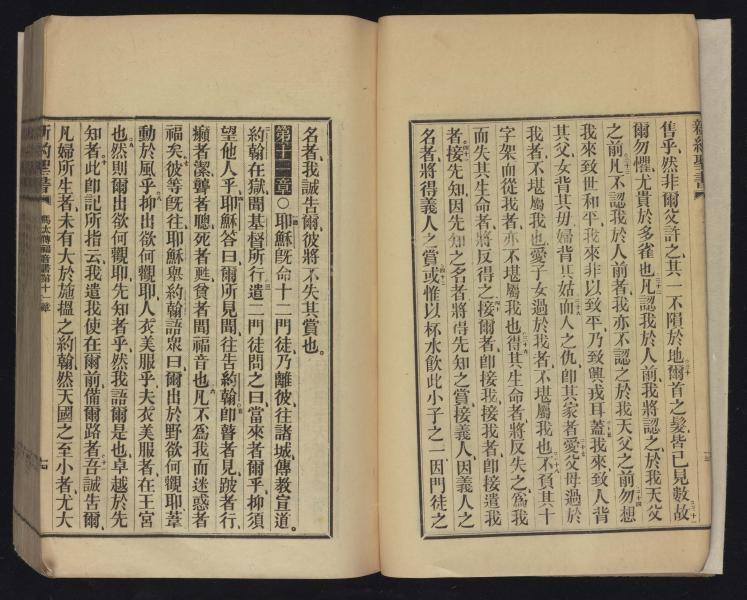 新約聖書
售乎然非爾父許之其一不隕於地爾首之髮皆已見數故
爾勿懼尤貴於多雀也凡認我於人前我將認之於我天父
之前凡不認我於人前者我亦不認之於我天父之前勿想
我來致世和平我來非以致平乃致興戎耳蓋我來致人背
其父女背其母婦背其姑而人之仇即其家者愛父母過於
我者不堪屬我也愛子女過於我者不堪屬我也不負其十
字架而從我者亦不堪屬我也得其生命者將反失之為我
而失其生命者將反得之接爾者即接我接我者即接遣我
者接先知因先知之名者將得先知之賞接義人因義人之
名者將得義人之賞或惟以杯水飲此小子之一因門徒之
名者我誠告爾彼將不失其賞也。
第十一章○耶穌既命十二門徒乃離彼往諸城傳教宣道。
約翰在獄聞基督所行遣二門徒問之曰當來者爾乎抑須
望他人乎耶穌答曰爾所見聞往告約翰即瞽者見跛者行
癩者潔聾者聰死者甦貧者聞福音也凡不為我而迷惑者
福矣彼等既往耶穌與約翰語眾曰爾出於野欲何觀耶葦
動於風乎抑出欲何觀耶人衣美服乎夫衣美服者在王宮
也然則爾出欲何觀耶先知者乎然我語爾是也卓越於先
知者此即記所指云我遣我使在爾前備爾路者吾誠告爾
凡婦所生者未有大於施搵之約翰然天國之至小者尤大
新約聖書 馬太傳福音書第十一章